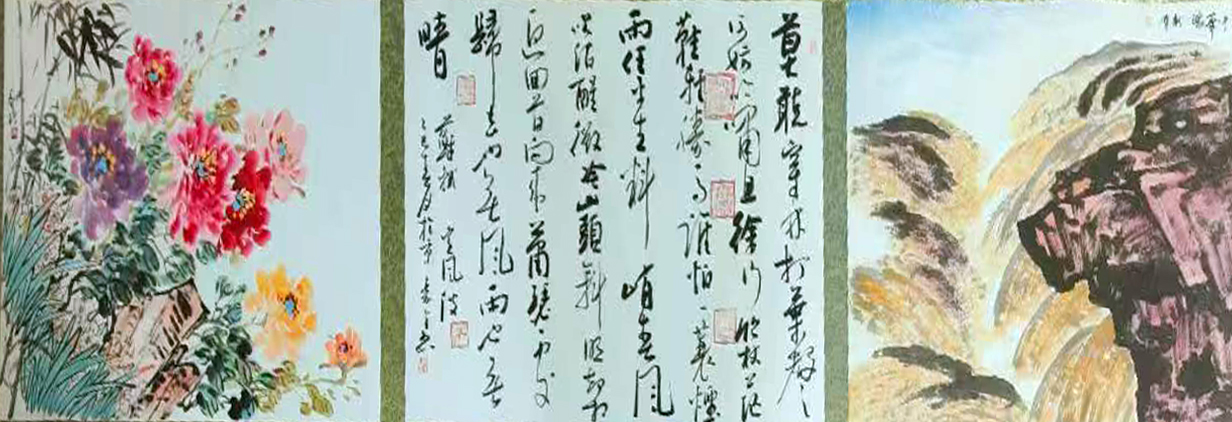 莫聴穿林打葉聲
何妨吟嘯且徐行竹杖芒
鞋輕勝馬誰怕一蓑煙
雨任平生料峭春風
吹酒醒微冷山頭斜照却相
迎回首向来蕭瑟處
歸去也無風雨也無
晴
蘇軾 定風波